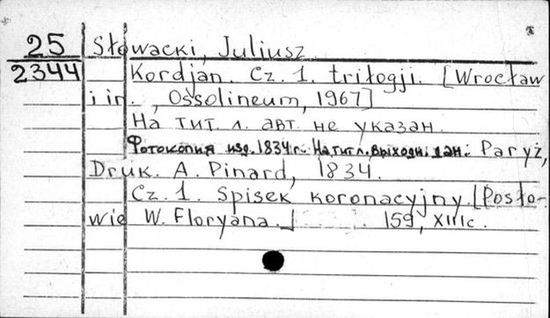 25 Słowacki, Juliusz
2344 Kordjan. Cz. 1. triłogji. [Wrocław
i in. , Ossolineum, 1967]
На тит. л. авт. не указан.
Фотокопия изд. 1834 г. На тит. л. выходн. дан.: Paryż,
Druk. A. Pinard, 1834.
Cz. 1. Spisek koronacyjny. [Posło-
wie W. Floryana.] 159, XIII c.